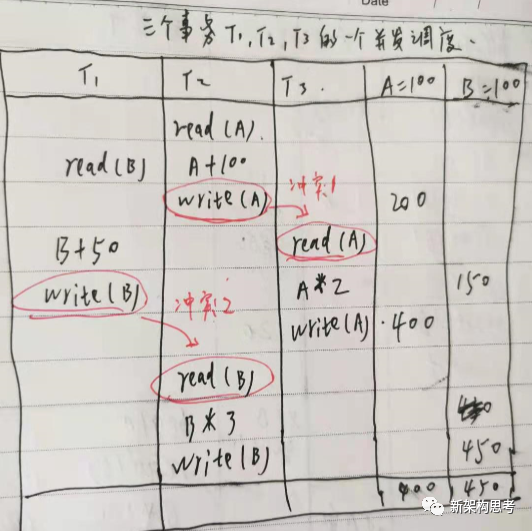 Date
三个事务 T1, T2, T3 的一个并发调度.
T1 T2 T3. A=100 B=100
read(A).
read(B) A+100
write(A) 冲突1 200
B+50 read(A)
write(B) 冲突2 A*2 150
write(A) 400
read(B)
B*3
write(B) 450
400 450
新架构思考